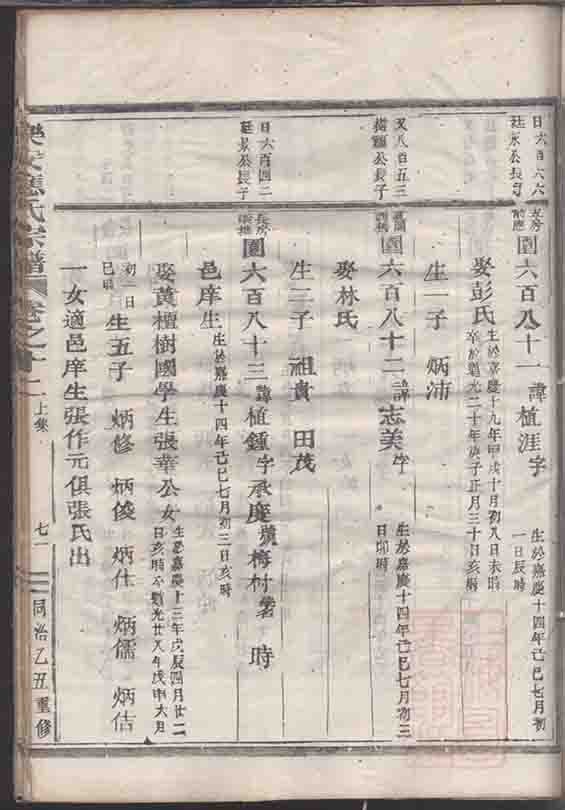 日六百六六
廷水公長子
六百八十一諱植涯字
生於嘉慶十四年己巳七月初
一日辰時
娶彭氏生於嘉慶十九年甲戌十月初八日未時
卒於道光二十年庚子正月三十日亥時
生一子 炳沛
又八百五三
公長子
六百八十二諱志美字
生於嘉慶十四年己巳七月初三
日卯時
娶林氏
生二子 祖貴 田茂
日六百四二
廷景公長子
長房
六百八十三諱植鍾字承慶號梅村 時
邑庠生生於嘉慶十四年己巳七月初三日亥時
娶黃檀樹國學生張華公女生於嘉慶十三年戊辰四月廿二
日亥時卒道光廿八年戊申六月
初二日
巳時生五子 炳修 炳俊 炳仕 炳儒 炳估
一女適邑庠生張作元俱張氏出
應氏宗譜 卷之十二上集 七一 同治乙丑重修